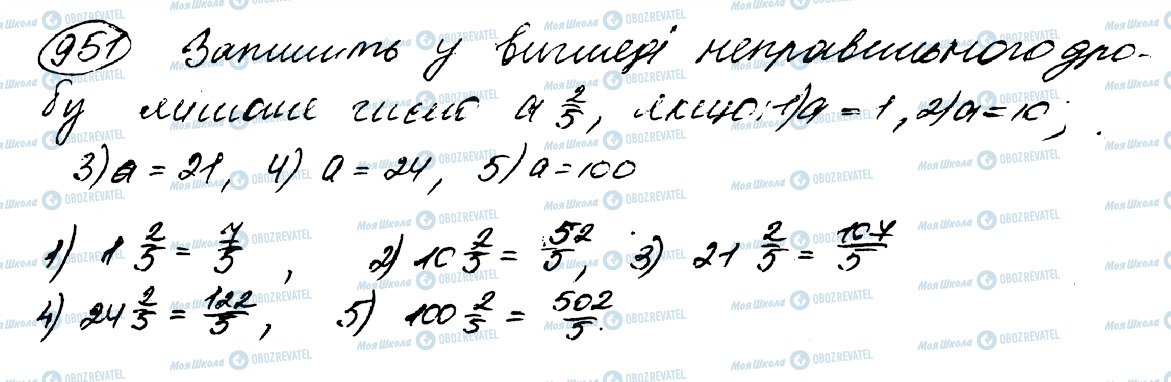 951 Запишіть у вигляді неправильного дро-
бу мішане число a 2/5, якщо: 1) a = 1, 2) a = 10;
3) a = 21, 4) a = 24, 5) a = 100
1) 1 2/5 = 7/5, 2) 10 2/5 = 52/5, 3) 21 2/5 = 107/5
4) 24 2/5 = 122/5, 5) 100 2/5 = 502/5.
Моя Школа OBOZREVATEL